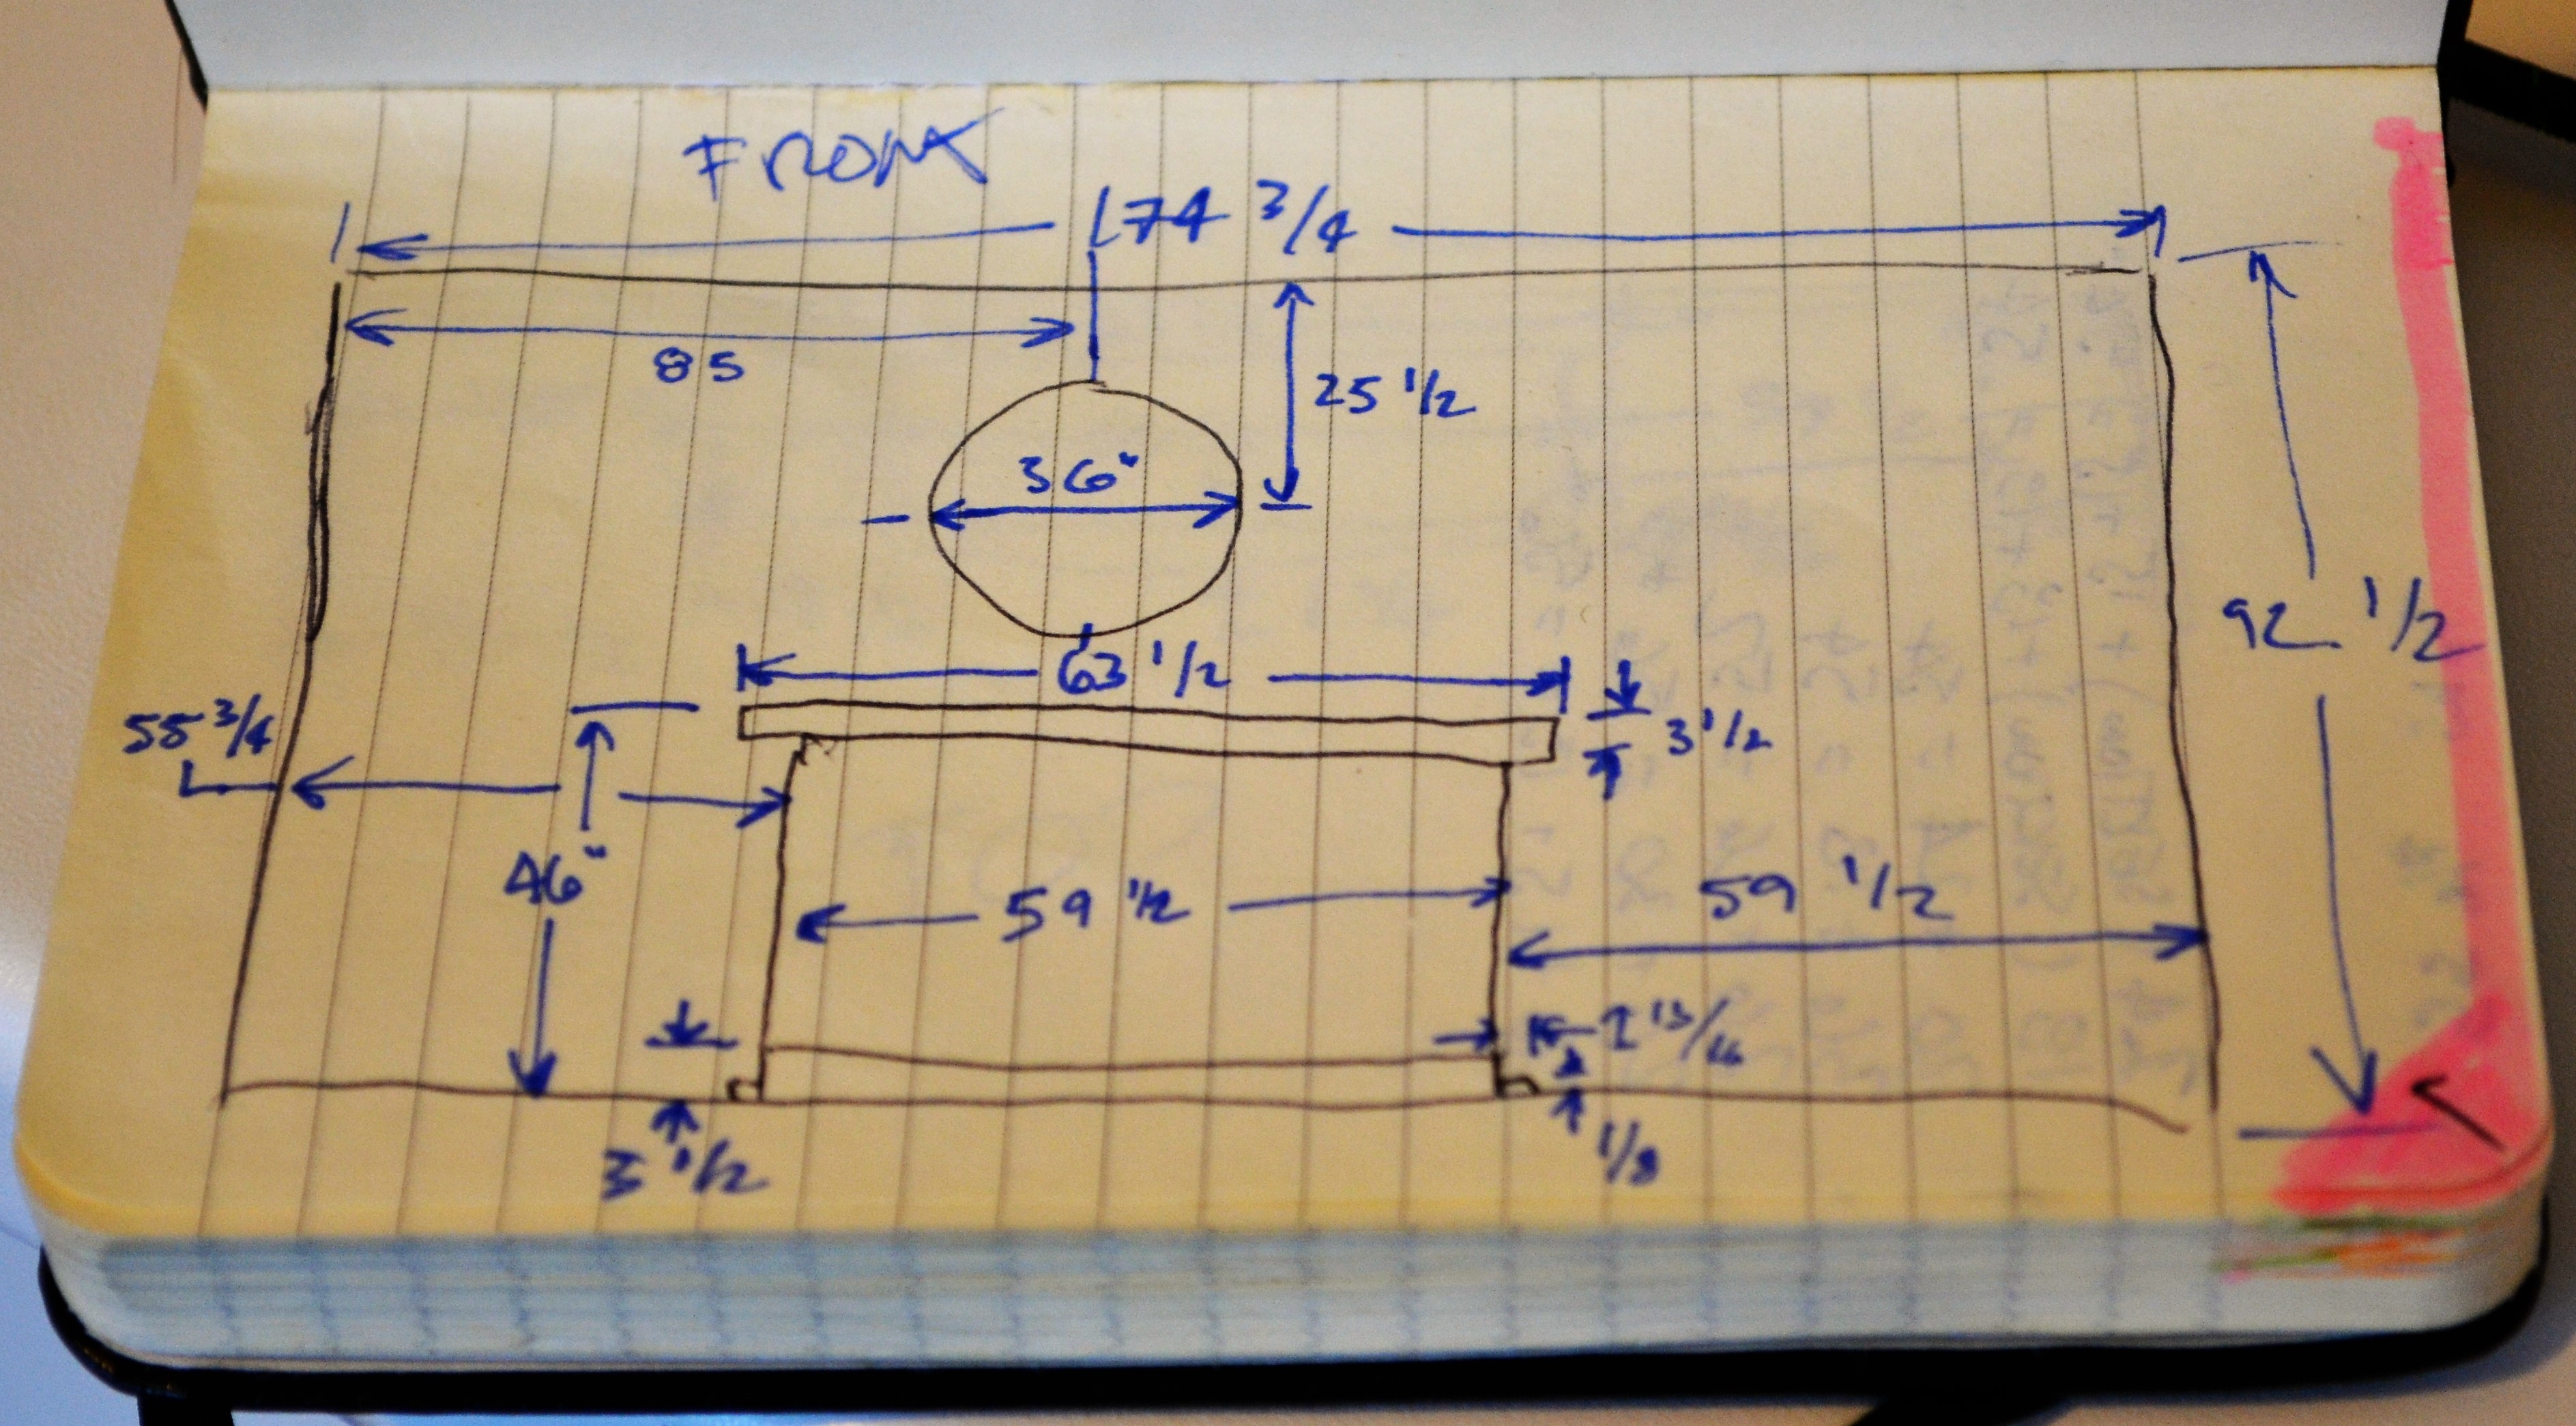 FRONT
174 3/4
85
25 1/2
36"
92 1/2
63 1/2
55 3/4
3 1/2
46"
59 1/2
59 1/2
2 13/16
3 1/2
1/8